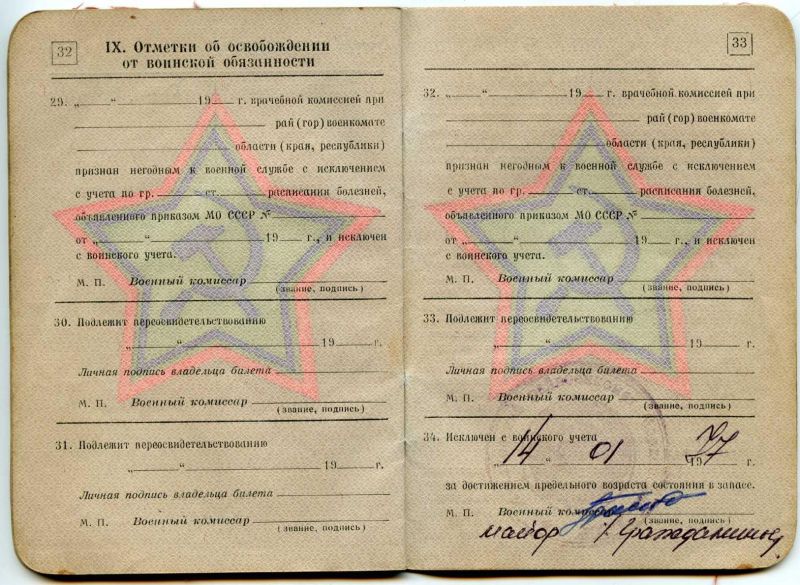 32
IX. Отметки об освобождении
от воинской обязанности
29. „ “ 19 г. врачебной комиссией при
рай (гор) военкомате
области (края, республики)
признан негодным к военной службе с исключением
с учета по гр. ст. расписания болезней,
объявленного приказом МО СССР №
от „ “ 19 г., и исключен
с воинского учета.
М. П. Военный комиссар
(звание, подпись)
30. Подлежит переосвидетельствованию
„ “ 19 г.
Личная подпись владельца билета
М. П. Военный комиссар
(звание, подпись)
31. Подлежит переосвидетельствованию
„ “ 19 г.
Личная подпись владельца билета
М. П. Военный комиссар
(звание, подпись)
33
32. „ “ 19 г. врачебной комиссией при
рай (гор) военкомате
области (края, республики)
признан негодным к военной службе с исключением
с учета по гр. ст. расписания болезней,
объявленного приказом МО СССР №
от „ “ 19 г., и исключен
с воинского учета.
М. П. Военный комиссар
(звание, подпись)
33. Подлежит переосвидетельствованию
„ “ 19 г.
Личная подпись владельца билета
М. П. Военный комиссар
(звание, подпись)
34. Исключен с воинского учета
„ 14 “ 01 1997 г.
за достижением предельного возраста состояния в запасе.
М. П. Военный комиссар
(звание, подпись)
майор